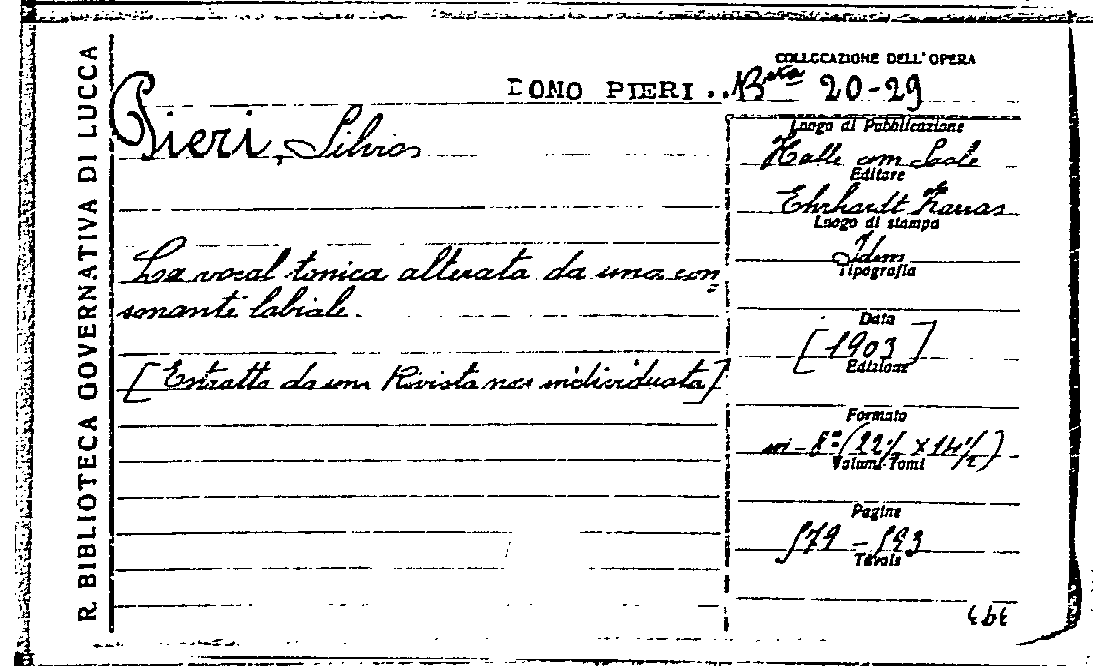 R. BIBLIOTECA GOVERNATIVA DI LUCCA
COLLOCAZIONE DELL'OPERA
DONO PIERI.. B.ta 20-29
Pieri, Silvio
Luogo di Pubblicazione
Halle am Saale
Editore
Ehrhardt Karras
Luogo di stampa
Idem
Tipografia
La vocal tonica alterata da una con=
sonante labiale.
Data
[1903]
Edizione
[Estratto da una Rivista non individuata]
Formato
in-8°(22½ x 14½)
Volumi-Tomi
Pagine
579 - 593
Tavole